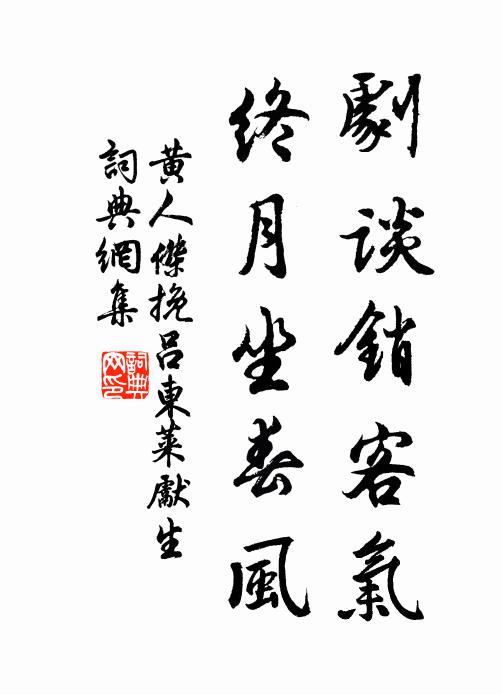 劇談銷客氣
終月坐春風
黃人傑挽呂東萊獻生
詞典網集
詞典网印